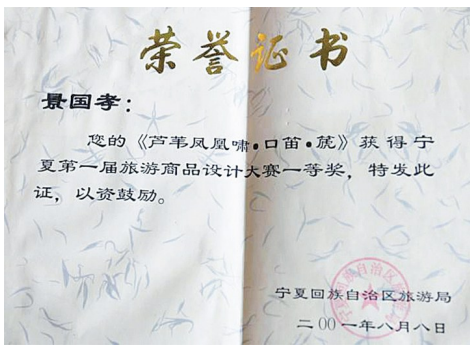 荣誉证书
景国孝：
您的《芦苇凤凰啸•口笛•篪》获得宁
夏第一届旅游商品设计大赛一等奖，特发此
证，以资鼓励。
宁夏回族自治区旅游局
二00一年八月八日